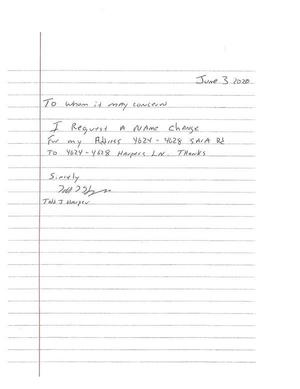 June 3 2020
To whom it may concern
I Request A Name Change
For my Address 4624-4628 Rd
To 4624-4628 Harpers Ln. Thanks
Sincerly
J Harper